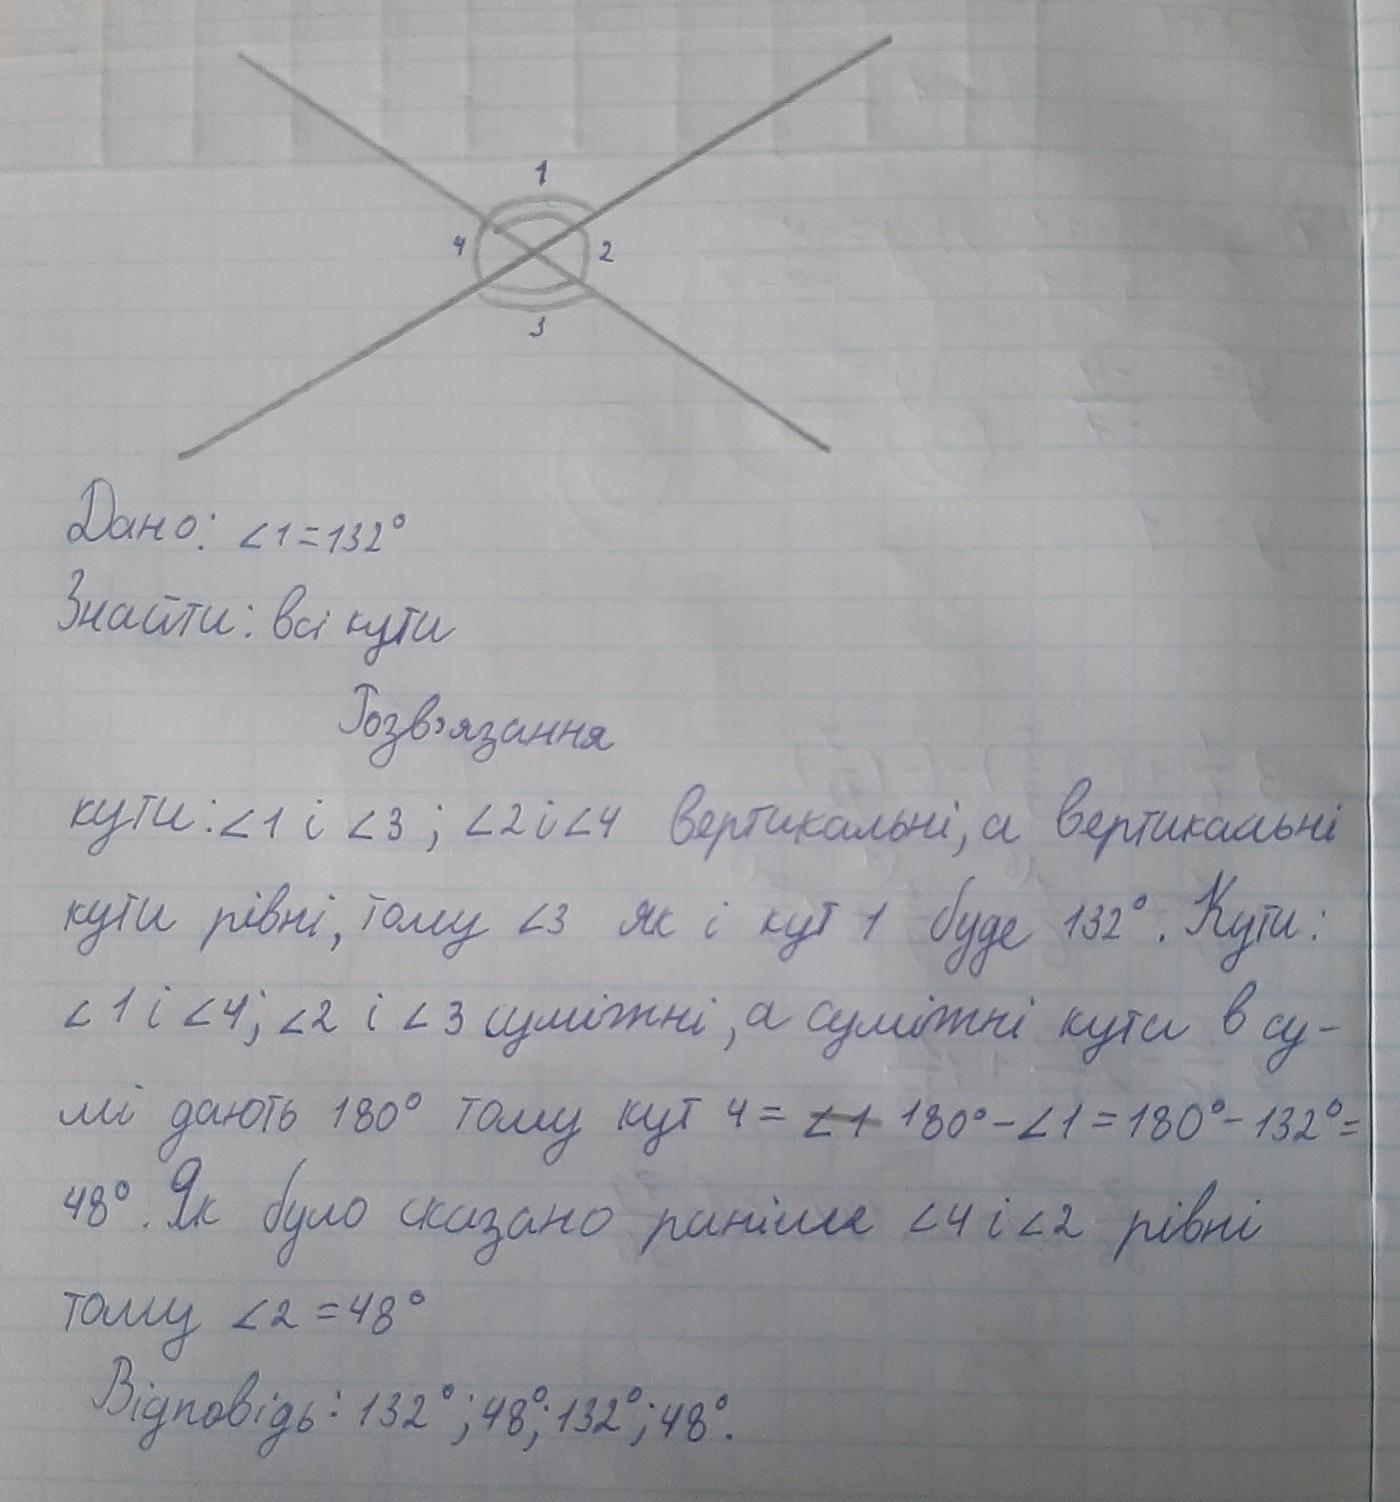 1
4
2
3
Дано: ∠1=132°
Знайти: всі кути
Розв'язання
кути: ∠1 і ∠3; ∠2 і ∠4 вертикальні, а вертикальні
кути рівні, тому ∠3 як і кут 1 буде 132°. Кути:
∠1 і ∠4; ∠2 і ∠3 суміжні, а суміжні кути в су-
мі дають 180° тому кут 4 = ∠1 180°-∠1=180°-132°=
48°. Як було сказано раніше ∠4 і ∠2 рівні
тому ∠2 =48°
Відповідь: 132°; 48°; 132°; 48°.